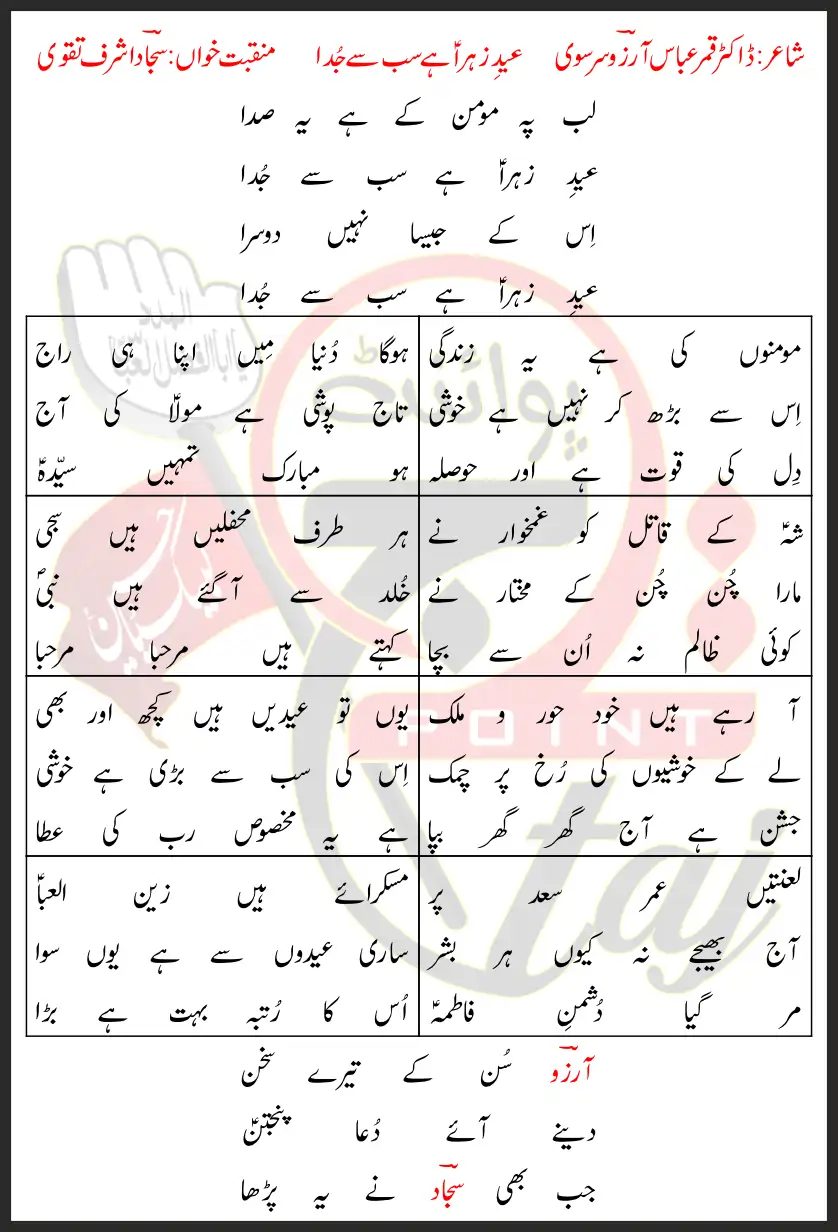 شاعر: ڈاکٹر قمر عباس آرزؔو سرسوی عیدِ زہراؑ ہے سب سے جُدا منقبت خواں: سجّؔاد اشرف تقوی
لب پہ مومن کے ہے یہ صدا
عیدِ زہراؑ ہے سب سے جُدا
اِس کے جیسا نہیں دوسرا
عیدِ زہراؑ ہے سب سے جُدا
مومنوں کی ہے یہ زندگی
اِس سے بڑھ کر نہیں ہے خوشی
دِل کی قوت ہے اور حوصلہ
ہوگا دُنیا مِیں اپنا ہی راج
تاج پوشی ہے مولاؑ کی آج
ہو مبارک تمہیں سیّدہؑ
شہؑ کے قاتل کو غمخوار نے
مارا چُن چُن کے مختار نے
کوئی ظالم نہ اُن سے بچا
ہر طرف محفلیں ہیں سجی
خُلد سے آگئے ہیں نبیؐ
کہتے ہیں مرحبا مرحبا
آ رہے ہیں خود حور و ملک
لے کے خوشیوں کی رُخ پر چمک
جشن ہے آج گھر گھر بپا
یوں تو عیدیں ہیں کچھ اور بھی
اِس کی سب سے بڑی ہے خوشی
ہے یہ مخصوص رب کی عطا
لعنتیں عمر سعد پر
آج بھیجے نہ کیوں ہر بشر
مر گیا دُشمنِ فاطمہؑ
مسکرائے ہیں زین العباؑ
ساری عیدوں سے ہے یوں سوا
اُس کا رُتبہ بہت ہے بڑا
آرزؔو سُن کے تیرے سخن
دینے آئے دُعا پنجتنؑ
جب بھی سجّؔاد نے یہ پڑھا
المدد
یا ابا الفضل العباسؑ
لبیک یا حسین
پوائنٹ
POINT
taj